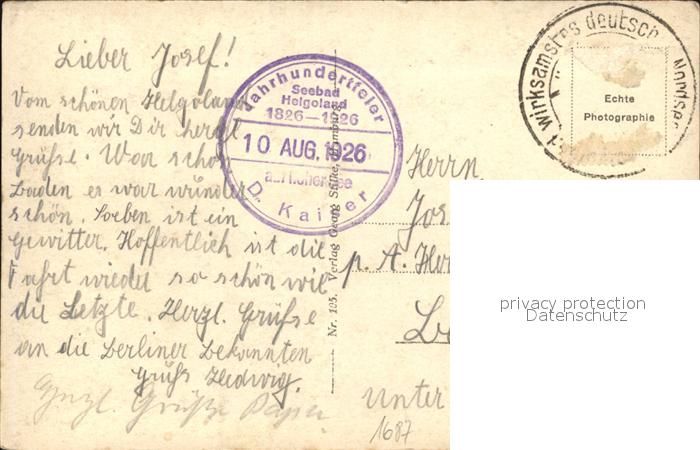 Lieber Josef!
Vom schönen Helgoland
senden wir Dir herzl.
Grüße. War schon
baden es war wunder
schön. Soeben ist ein
Gewitter. Hoffentlich ist die
Fahrt wieder so schön wie
die Letzte. Herzl. Grüße
an die Berliner Bekannten
Gruß Hedwig.
Grüße
Jahrhundertfeier
Seebad
Helgoland
1826-1926
10 AUG. 1926
D. Kaiser
Nr. 105. Verlag Georg Stilke, Hamburg
wirksamstes deutsch
Nordsee
Echte
Photographie
Herrn
Jos
p. A. Her
Be
unter
1687
privacy protection
Datenschutz